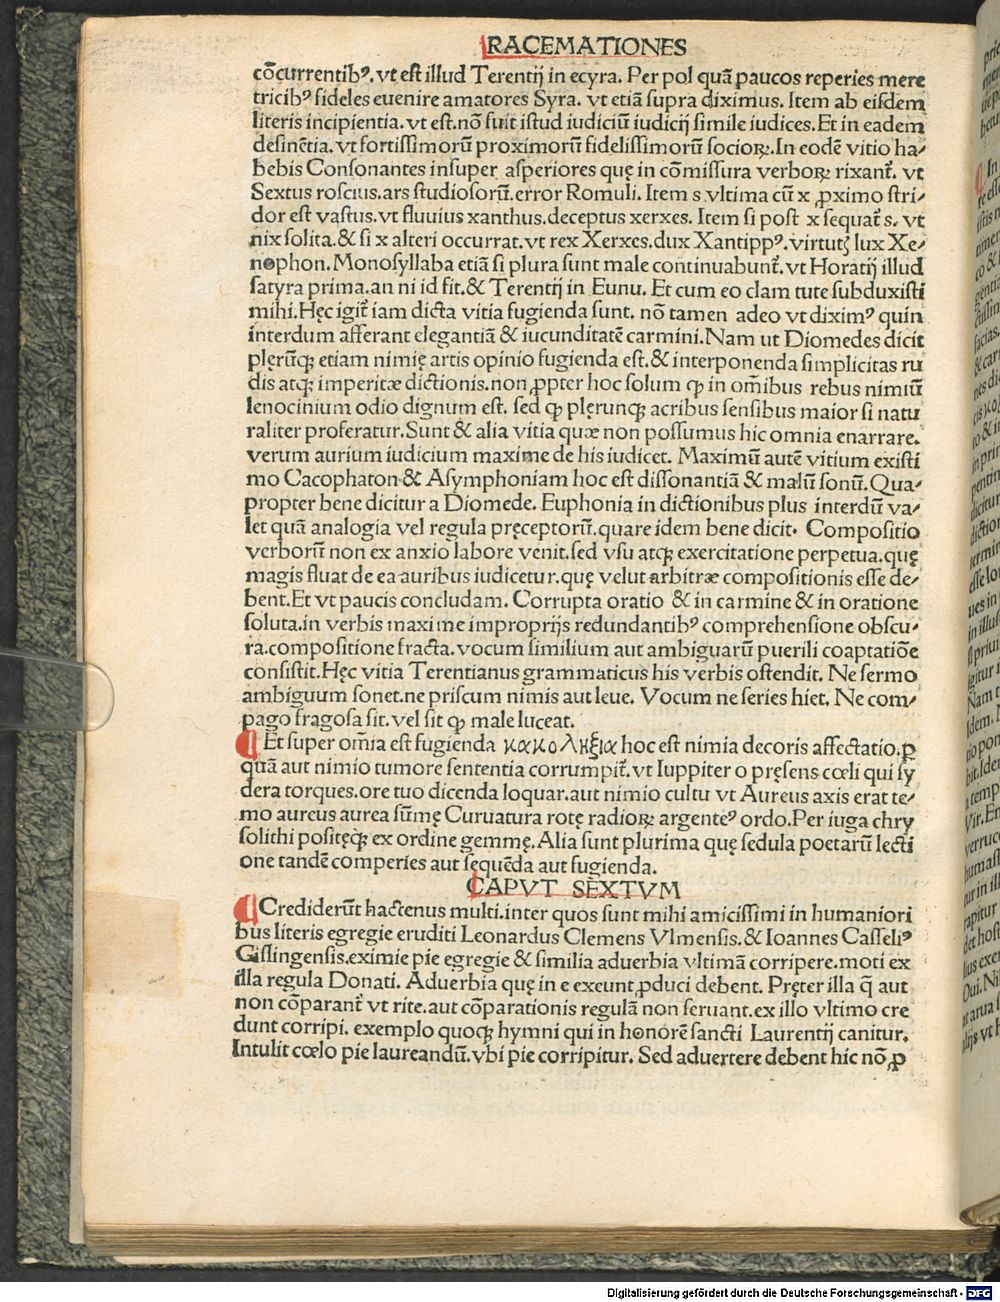 RACEMATIONES
cōcurrentibꝰ. vt eſt illud Terentij in ecyra. Per pol quā paucos reperies mere
tricibꝰ fideles euenire amatores Syra. vt etiā ſupra diximus. Item ab eiſdem
literis incipientia. vt eſt. nō fuit iſtud iudiciū iudicij ſimile iudices. Et in eadem
deſinētia. vt fortiſſimorū proximorū fideliſſimorū socioꝝ. In eodē vitio ha/
bebis Conſonantes inſuper aſperiores quę in cōmiſſura verboꝝ rixant᷑. vt
Sextus roſcius. ars ſtudioſorū. error Romuli. Item s vltima cū x ꝓximo ſtri/
dor eſt vaſtus. vt fluuius xanthus. deceptus xerxes. Item ſi poſt x ſequat᷑ s. vt
nix ſolita. & ſi x alteri occurrat. vt rex Xerxes. dux Xantippꝰ. virtutꝫ lux Xe/
nophon. Monoſyllaba etiā ſi plura ſunt male continuabunt᷑. vt Horatij illud
ſatyra prima. an ni id fit. & Terentij in Eunu. Et cum eo clam tute ſubduxiſti
mihi. Hęc igit᷑ iam dicta vitia fugienda ſunt. nō tamen adeo vt diximꝰ quin
interdum afferant elegantiā & iucunditatē carmini. Nam ut Diomedes dicit
plęrūqꝫ etiam nimię artis opinio fugienda eſt. & interponenda ſimplicitas ru
dis atqꝫ imperitæ dictionis. non ꝓpter hoc ſolum ꝙ in om̄ibus rebus nimiū
lenocinium odio dignum eſt. ſed ꝙ plęrunqꝫ acribus ſenſibus maior ſi natu
raliter proferatur. Sunt & alia vitia quæ non poſſumus hic omnia enarrare.
verum aurium iudicium maxime de his iudicet. Maximū autē vitium exiſti
mo Cacophaton & Aſymphoniam hoc eſt diſſonantiā & malū ſonū. Qua/
propter bene dicitur a Diomede. Euphonia in dictionibus plus interdū va/
let quā analogia vel regula pręceptorū. quare idem bene dicit. Compoſitio
verborū non ex anxio labore venit. ſed vſu atqꝫ exercitatione perpetua. quę
magis fluat de ea auribus iudicetur. quę velut arbitræ compoſitionis eſſe de/
bent. Et vt paucis concludam. Corrupta oratio & in carmine & in oratione
ſoluta. in verbis maxime improprijs redundantibꝰ comprehenſione obſcu/
ra. compoſitione fracta. vocum ſimilium aut ambiguarū puerili coaptatiōe
conſiſtit. Hęc vitia Terentianus grammaticus his verbis oſtendit. Ne ſermo
ambiguum ſonet. ne priſcum nimis aut leue. Vocum ne ſeries hiet. Ne com/
pago fragoſa ſit. vel ſit ꝙ male luceat.
Et ſuper om̄ia eſt fugienda κακοληξια hoc eſt nimia decoris affectatio. ꝑ
quā aut nimio tumore ſententia corrumpit᷑. vt Iuppiter o pręſens cœli qui ſy
dera torques. ore tuo dicenda loquar. aut nimio cultu vt Aureus axis erat te/
mo aureus aurea ſūmę Curuatura rotę radioꝝ argenteꝰ ordo. Per iuga chry
ſolithi poſitęqꝫ ex ordine gemmę. Alia ſunt plurima quę ſedula poetarū lecti
one tandē comperies aut ſequēda aut fugienda.
CAPVT SEXTVM
Crediderūt hactenus multi. inter quos ſunt mihi amiciſſimi in humaniori
bus literis egregie eruditi Leonardus Clemens Vlmenſis. & Ioannes Caſſeliꝰ
Giſlingenſis. eximie pie egregie & ſimilia aduerbia vltimā corripere. moti ex
illa regula Donati. Aduerbia quę in e exeunt ꝓduci debent. Pręter illa q̄ aut
non cōparant᷑ vt rite. aut cōparationis regulā non ſeruant. ex illo vltimo cre
dunt corripi. exemplo quoqꝫ hymni qui in honorē ſancti Laurentij canitur.
Intulit cœlo pie laureandū. vbi pie corripitur. Sed aduertere debent hic nō ꝓ
Digitalisierung gefördert durch die Deutsche Forschungsgemeinschaft - DFG